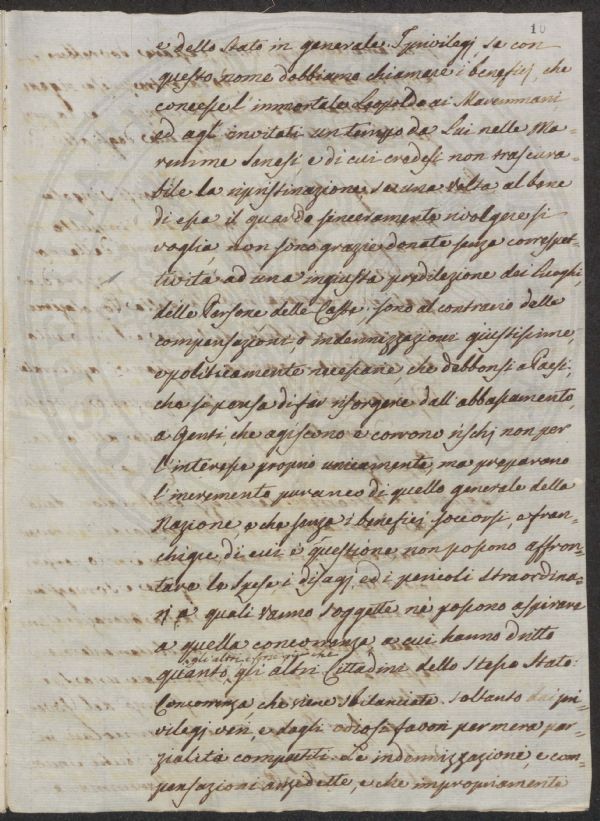 10
e dello Stato in generale. I privilegj se con
questo nome dobbiamo chiamare i beneficj, che
concesse l'immortale Leopoldo ai Maremmani
ed agl'invitati un tempo da Lui nelle Ma-
remme Senesi, e di cui credesi non trascura-
bile la ripristinazione, se una volta al bene
di esse il guardo sinceramente rivolgere si
voglia, non sono grazie donate senza correspet-
tività ad una ingiusta predilezione dei Luoghi,
delle Persone delle Caste, sono al contrario delle
compensazioni, o indennizzazioni giustissime,
e politicamente necessarie, che debbonsi a Paesi,
che si pensa di far risorgere dall'abbassamento,
a Genti, che agiscono e corrono rischj non per
l'interesse proprio unicamente, ma preparano
l'incremento puranco di quello generale della
Nazione, e che senza i beneficj soccorsi, e fran-
chigie, di cui è questione, non possono affron-
tare le spese i disagj, ed i pericoli straordina-
rj, a quali vanno soggette nè possono aspirare
a quella concorrenza, a cui hanno dritto
quanto gli altri Cittadini dello stesso Stato:
Concorrenza che viene sbilanciata soltanto dai pri-
vilegj veri, e dagli odiosi favori per mera par-
zialità compartiti. Le indennizzazioni, e com-
pensazioni anzedette, e che impropriamente